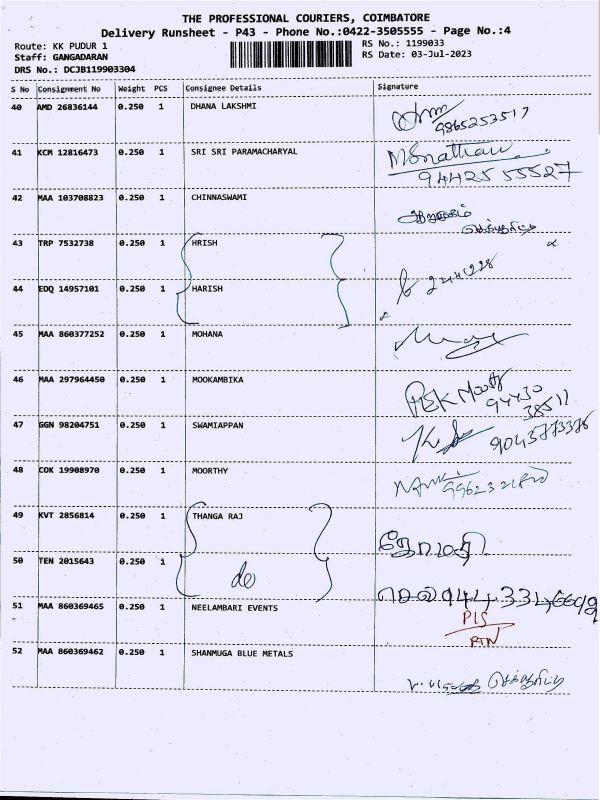 THE PROFESSIONAL COURIERS, COIMBATORE
Delivery Runsheet - P43 - Phone No.:0422-3505555 - Page No.:4
Route: KK PUDUR 1
RS No.: 1199033
Staff: GANGADARAN
RS Date: 03-Jul-2023
DRS No.: DCJB119903304
S No Consignment No Weight PCS Consignee Details Signature
40 AMD 26836144 0.250 1 DHANA LAKSHMI
9865253517
41 KCM 12816473 0.250 1 SRI SRI PARAMACHARYAL
94425 55527
42 MAA 103708823 0.250 1 CHINNASWAMI
43 TRP 7532738 0.250 1 HRISH
44 EDQ 14957101 0.250 1 HARISH
2441228
45 MAA 860377252 0.250 1 MOHANA
46 MAA 297964450 0.250 1 MOOKAMBIKA
94430
38511
47 GGN 98204751 0.250 1 SWAMIAPPAN
48 COK 19908970 0.250 1 MOORTHY
49 KVT 2856814 0.250 1 THANGA RAJ
கோமதி
50 TEN 2015643 0.250 1 do
51 MAA 860369465 0.250 1 NEELAMBARI EVENTS
RTN
52 MAA 860369462 0.250 1 SHANMUGA BLUE METALS